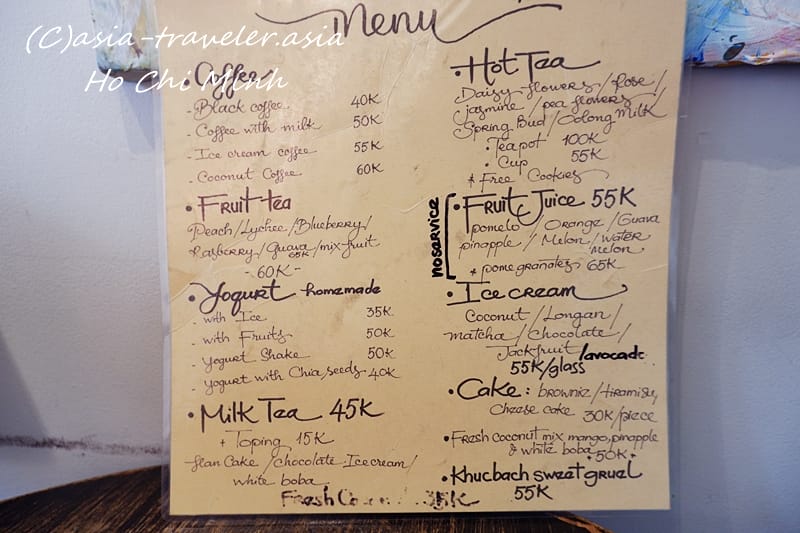 Menu
(C)asia-traveler.asia
Ho Chi Minh
• Coffee
- Black coffee. 40K
- Coffee with milk 50K
- Ice cream coffee 55K
- Coconut Coffee 60K
• Fruit tea
Peach/Lychee/Blueberry/
Rasberry/Guava 65K/mix-fruit
- 60K -
• Yogurt homemade
- with Ice 35K
- with Fruits 50K
- yogurt Shake 50K
- yogurt with Chia seeds 40K
• Milk Tea 45K
+ Toping 15K
flan Cake /chocolate Icecream/
white boba
Fresh 35K
• Hot Tea
Daisy flowers/Rose/
jazmine/pea flowers/
Spring Bud/Oolong Milk
• Tea pot 100K
• Cup 55K
* Free Cookies
noservice
• Fruit Juice 55K
pomelo / Orange / Guava
pinapple / Melon / Water
Melon
* pomegranates 65K
• Ice cream
Coconut / Longan /
matcha / Chocolate /
Jackfruit /avocado
55K/glass
• Cake: browniz/tiramisu,
Cheese cake 30K/piece
• Fresh coconut mix mango, pinapple
& white boba • 50K •
• Khucbach sweet gruel
55K